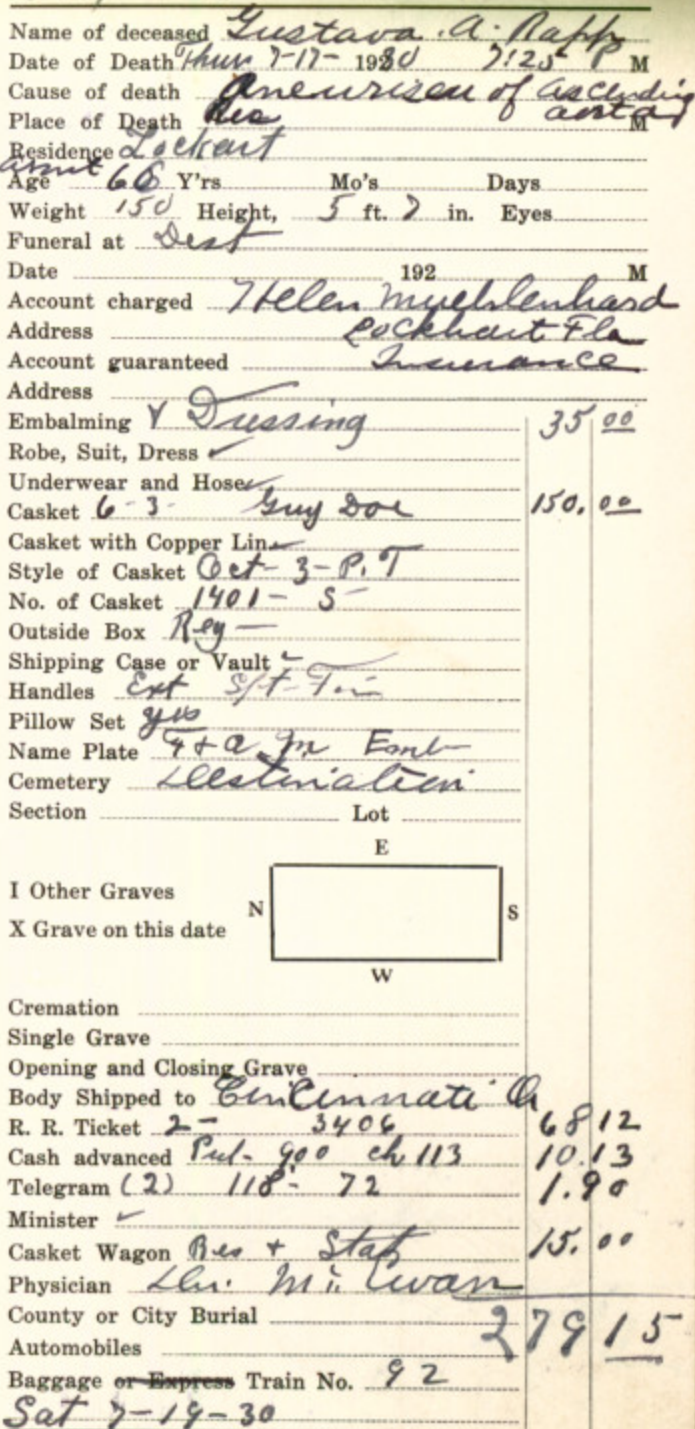 Name of deceased Gustava. A. Rapp
Date of Death Thur 7-17- 1930 7:25 P M
Cause of death Aneurizeu of ascending
Place of Death Res aorta M
Residence Lockart
about
Age 66 Y'rs Mo's Days
Weight 150 Height, 5 ft. 7 in. Eyes
Funeral at Dest
Date 192 M
Account charged Helen Muehlenhard
Address Lockhart Fla
Account guaranteed Insurance
Address
Embalming & Dressing 35 00
Robe, Suit, Dress ✓
Underwear and Hose ✓
Casket 6-3- Guy Doe 150.00
Casket with Copper Lin.
Style of Casket Oct-3-P.T
No. of Casket 1401- S-
Outside Box Reg-
Shipping Case or Vault -
Handles Ext S/t-
Pillow Set yes
Name Plate Emb-
Cemetery Destination
Section Lot
E
I Other Graves
N S
X Grave on this date
W
Cremation
Single Grave
Opening and Closing Grave
Body Shipped to Cincinnati O
R. R. Ticket 2- 3406 68 12
Cash advanced Pul- 900 ch 113 10.13
Telegram (2) 118- 72 1.90
Minister ✓
Casket Wagon Res + Sta 15.00
Physician Dr. Mc Ewan
County or City Burial 279 15
Automobiles
Baggage or Express Train No. 92
Sat 7-19-30